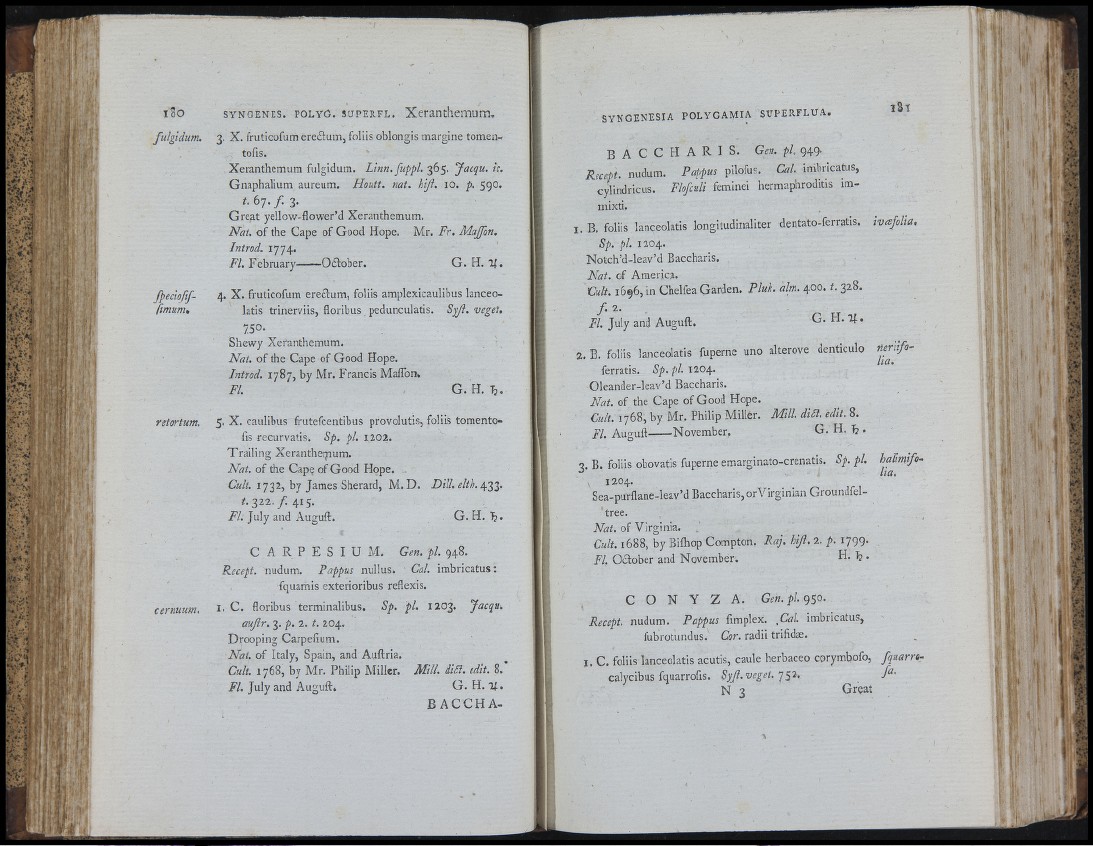 180 SYNGENES. POLYG. SUPERFL. Xeranthemum.
fulgidum. 3. X. fruticoſum erectum, foliis oblongis margine tomen-
toſis.
Xeranthemum fulgidum. Linn. ſuppl. 365. Jacqu. ic.
Gnaphalium aureum. Houtt. nat. hiſt. 10. p. 590.
t. 67. f. 3.
Great yellow-flower'd Xeranthemum.
Nat. of the Cape of Good Hope. Mr. Fr. Maſſon.
Introd. 1774.
Fl. February——October. G. H. ♃.
ſpecioſiſ-
ſimum. 4. X. fruticoſum erectum, foliis amplexicaulibus lanceo-
latis trinerviis, floribus pedunculatis. Syſt. veget.
750.
Shewy Xeranthemum.
Nat. of the Cape of Good Hope.
Introd. 1787, by Mr. Francis Maſſon.
Fl. G. H. ♄.
retortum. 5. X. caulibus fruteſcentibus provolutis, foliis tomento-
ſis recurvatis. Sp. pl. 1202.
Trailing Xeranthemum.
Nat. of the Cape of Good Hope.
Cult. 1732, by James Sherard, M. D. Dill. elth. 433.
t. 322. f. 415.
Fl. July and Auguſt. G. H. ♄.
CARPESIUM. Gen. pl. 948.
Recept. nudum. Pappus nullus. Cal. imbricatus:
ſquamis exterioribus reflexis.
cernuum. 1. C. floribus terminalibus. Sp. pl. 1203. Jacqu.
auſtr. 3. p. 2. t. 204.
Drooping Carpeſium.
Nat. of Italy, Spain, and Auſtria.
Cult. 1768, by Mr. Philip Miller. Mill. dict. edit. 8.
Fl. July and Auguſt. G. H. ♃.
BACCHA-
SYNGENESIA POLYGAMIA SUPERFLUA. 181
BACCHARIS. Gen. pl. 949.
Recept. nudum. Pappus piloſus. Cal. imbricatus,
cylindricus. Floſculi feminei hermaphroditis im-
mixti.
1. B. foliis lanceolatis longitudinaliter dentato-ſerratis. ivæfolia.
Sp. pl. 1204.
Notch'd-leav'd Baccharis.
Nat. of America.
Cult. 1696, in Chelſea Garden. Pluk. alm. 400. t. 328.
f. 2.
Fl. July and Auguſt. G. H. ♃.
2. B. foliis lanceolatis ſuperne uno alterove denticulo neriifo-
lia.
ſerratis. Sp. pl. 1204.
Oleander-leav'd Baccharis.
Nat. of the Cape of Good Hope.
Cult. 1768, by Mr. Philip Miller. Mill. dict. edit. 8.
Fl. Auguſt——November. G. H. ♄.
3. B. foliis obovatis ſuperne emarginato-crenatis. Sp. pl. halimifo-
lia.
1204.
Sea-purſlane-leav'd Baccharis, or Virginian Groundſel-
tree.
Nat. of Virginia.
Cult. 1688, by Biſhop Compton. Raj. hiſt. 2. p. 1799.
Fl. October and November. H. ♄.
CONYZA. Gen. pl. 950.
Recept. nudum. Pappus ſimplex. Cal. imbricatus,
ſubrotundus. Cor. radii trifidæ.
1. C. foliis lanceolatis acutis, caule herbaceo corymboſo, ſquarro-
ſa.
calycibus ſquarroſis. Syſt. veget. 752.
N 3 Great